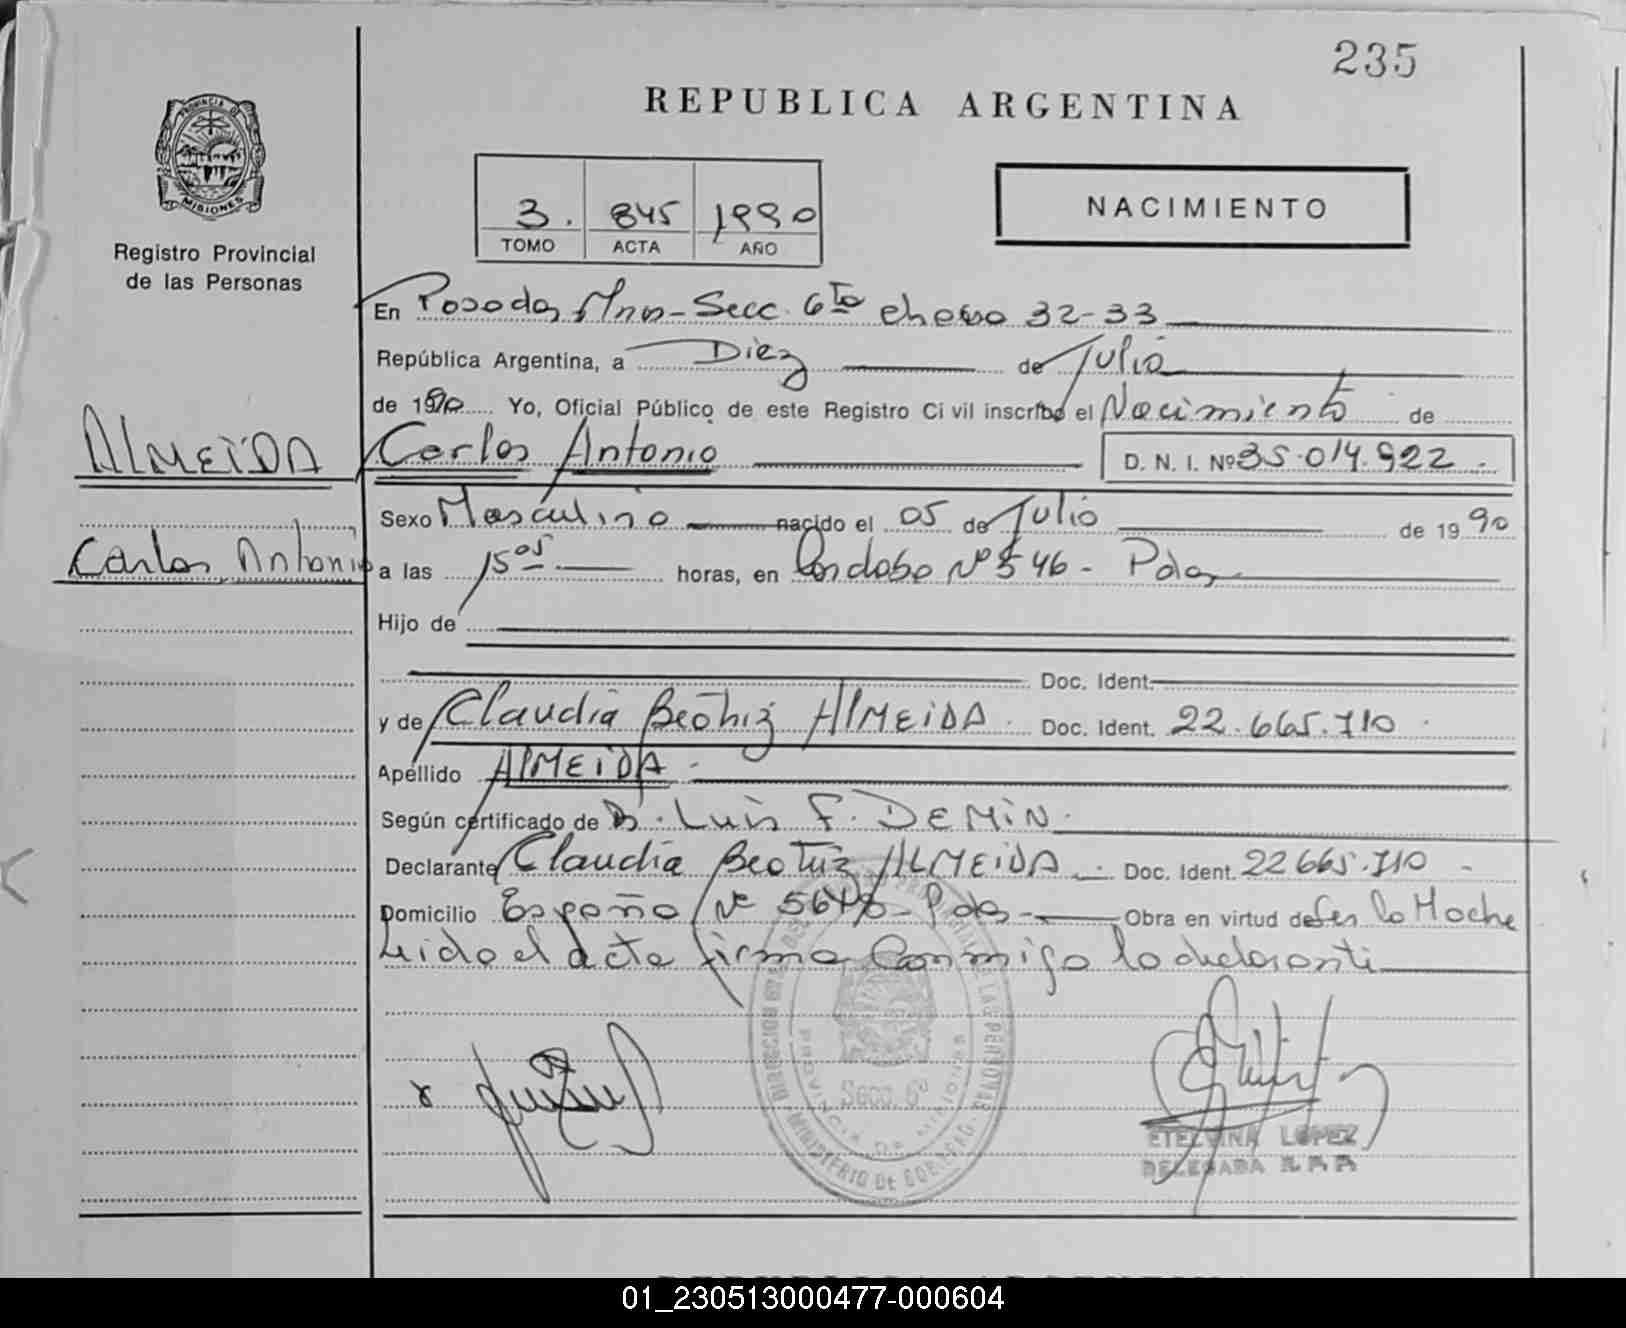 235
REPUBLICA ARGENTINA
PROVINCIA DE MISIONES
Registro Provincial
de las Personas
3. 845 1990
TOMO ACTA AÑO
NACIMIENTO
En Posadas Mnes - Secc. 6ta chacra 32-33
República Argentina, a Diez de Julio
de 1990 Yo, Oficial Público de este Registro Civil inscribo el Nacimiento de
ALMEIDA Carlos Antonio D. N. I. Nº 35.014.922 -
Sexo Masculino nacido el 05 de Julio de 1990
Carlos Antonio a las 15 05 horas, en Cordoba Nº 546 - Pdas
Hijo de
Doc. Ident.
y de Claudia Beatriz ALMEIDA. Doc. Ident. 22.665.710
Apellido ALMEIDA -
Según certificado de Dr. Luis F. DEMIN.
Declarante Claudia Beatriz ALMEIDA. Doc. Ident. 22665.710 -
Domicilio España Nº - Pdas - Obra en virtud de Ser la Madre
Leido el acta firma Conmigo la declarante
DIRECCION PROVINCIAL DE LAS PERSONAS
Secc. 6ª
PROVINCIA DE MISIONES
MINISTERIO DE GOBIERNO
x
ETELVINA LOPEZ
DELEGADA R.P.P.
01_230513000477-000604